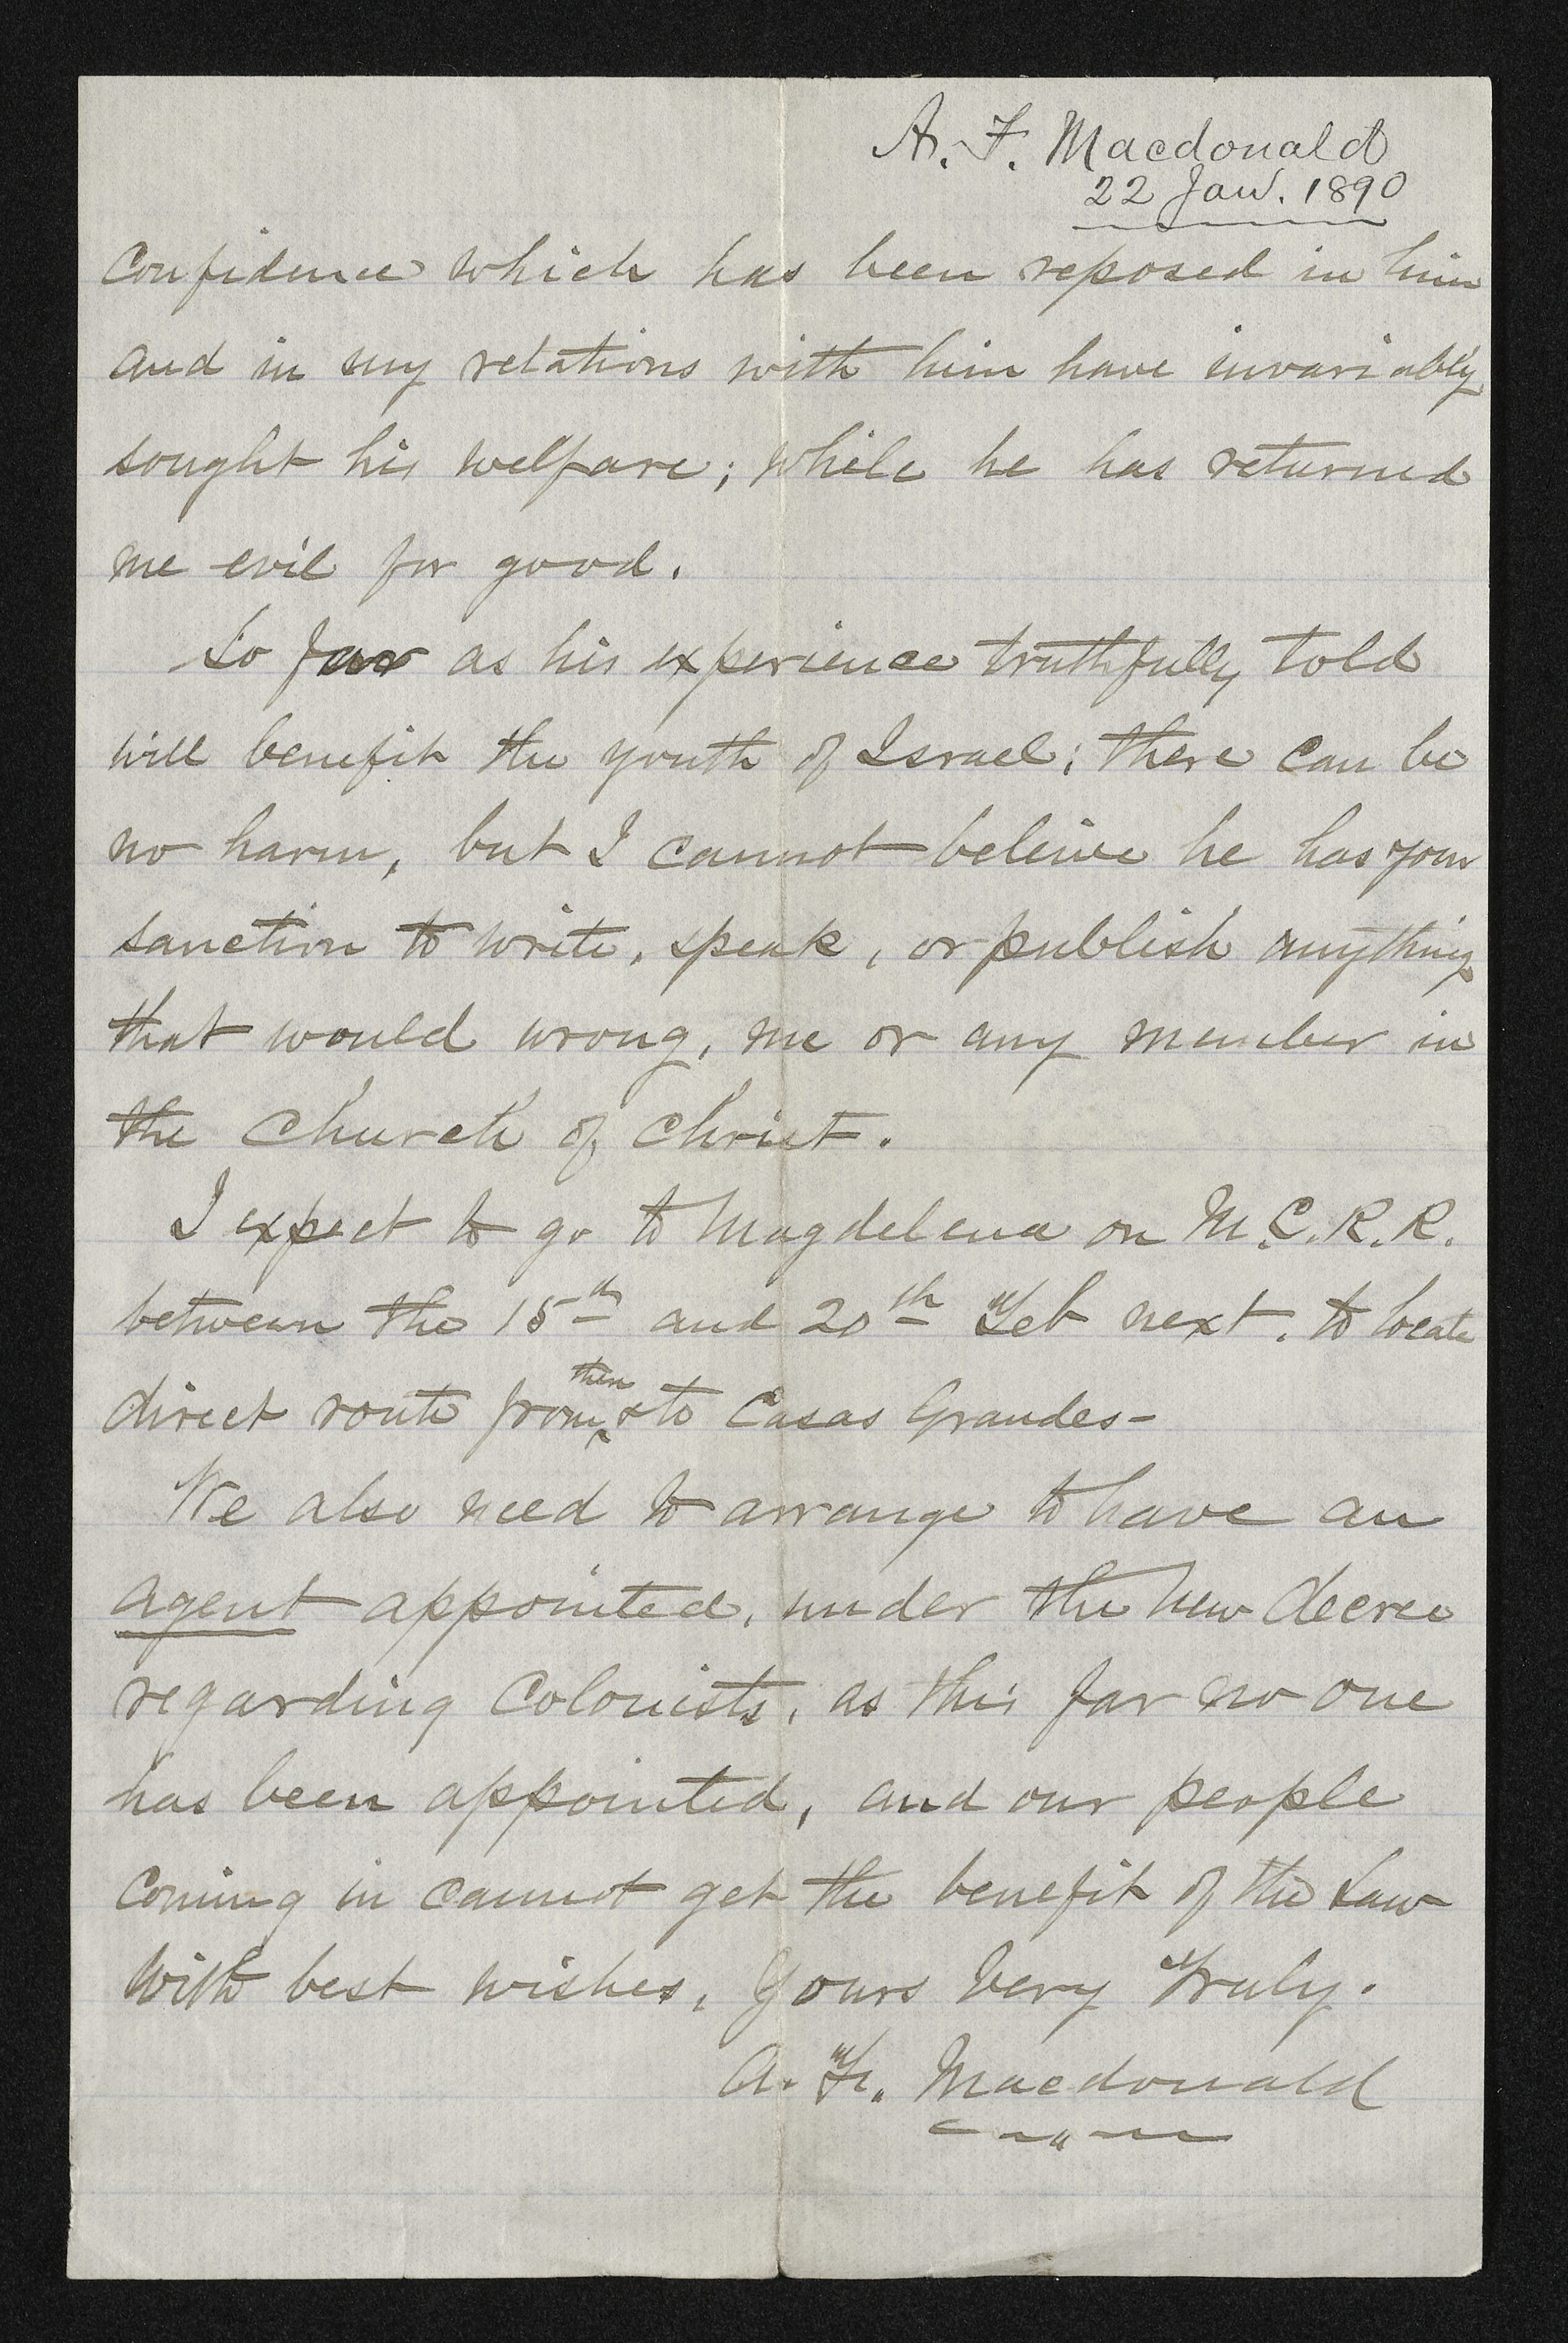 A. F. Macdonald
22 Jan. 1890
confidence which has been reposed in him
and in my relations with him have invariably
sought his welfare; while he has returned
me evil for good.
So far as his experience truthfully told
will benefit the youth of Israel; there can be
no harm, but I cannot beleive he has your
sanction to write, speak, or publish anything
that would wrong, me or any member in
the Church of Christ.
I expect to go to Magdelena on M.C.R.R.
between the 15th and 20th Feb next. to locate
direct route from then & to Casas Grandes-
We also need to arrange to have an
agent appointed, under the new decree
regarding Colonists, as this far no one
has been appointed, and our people
coming in cannot get the benefit of the Law
With best wishes, Yours Very Truly.
A. F. Macdonald